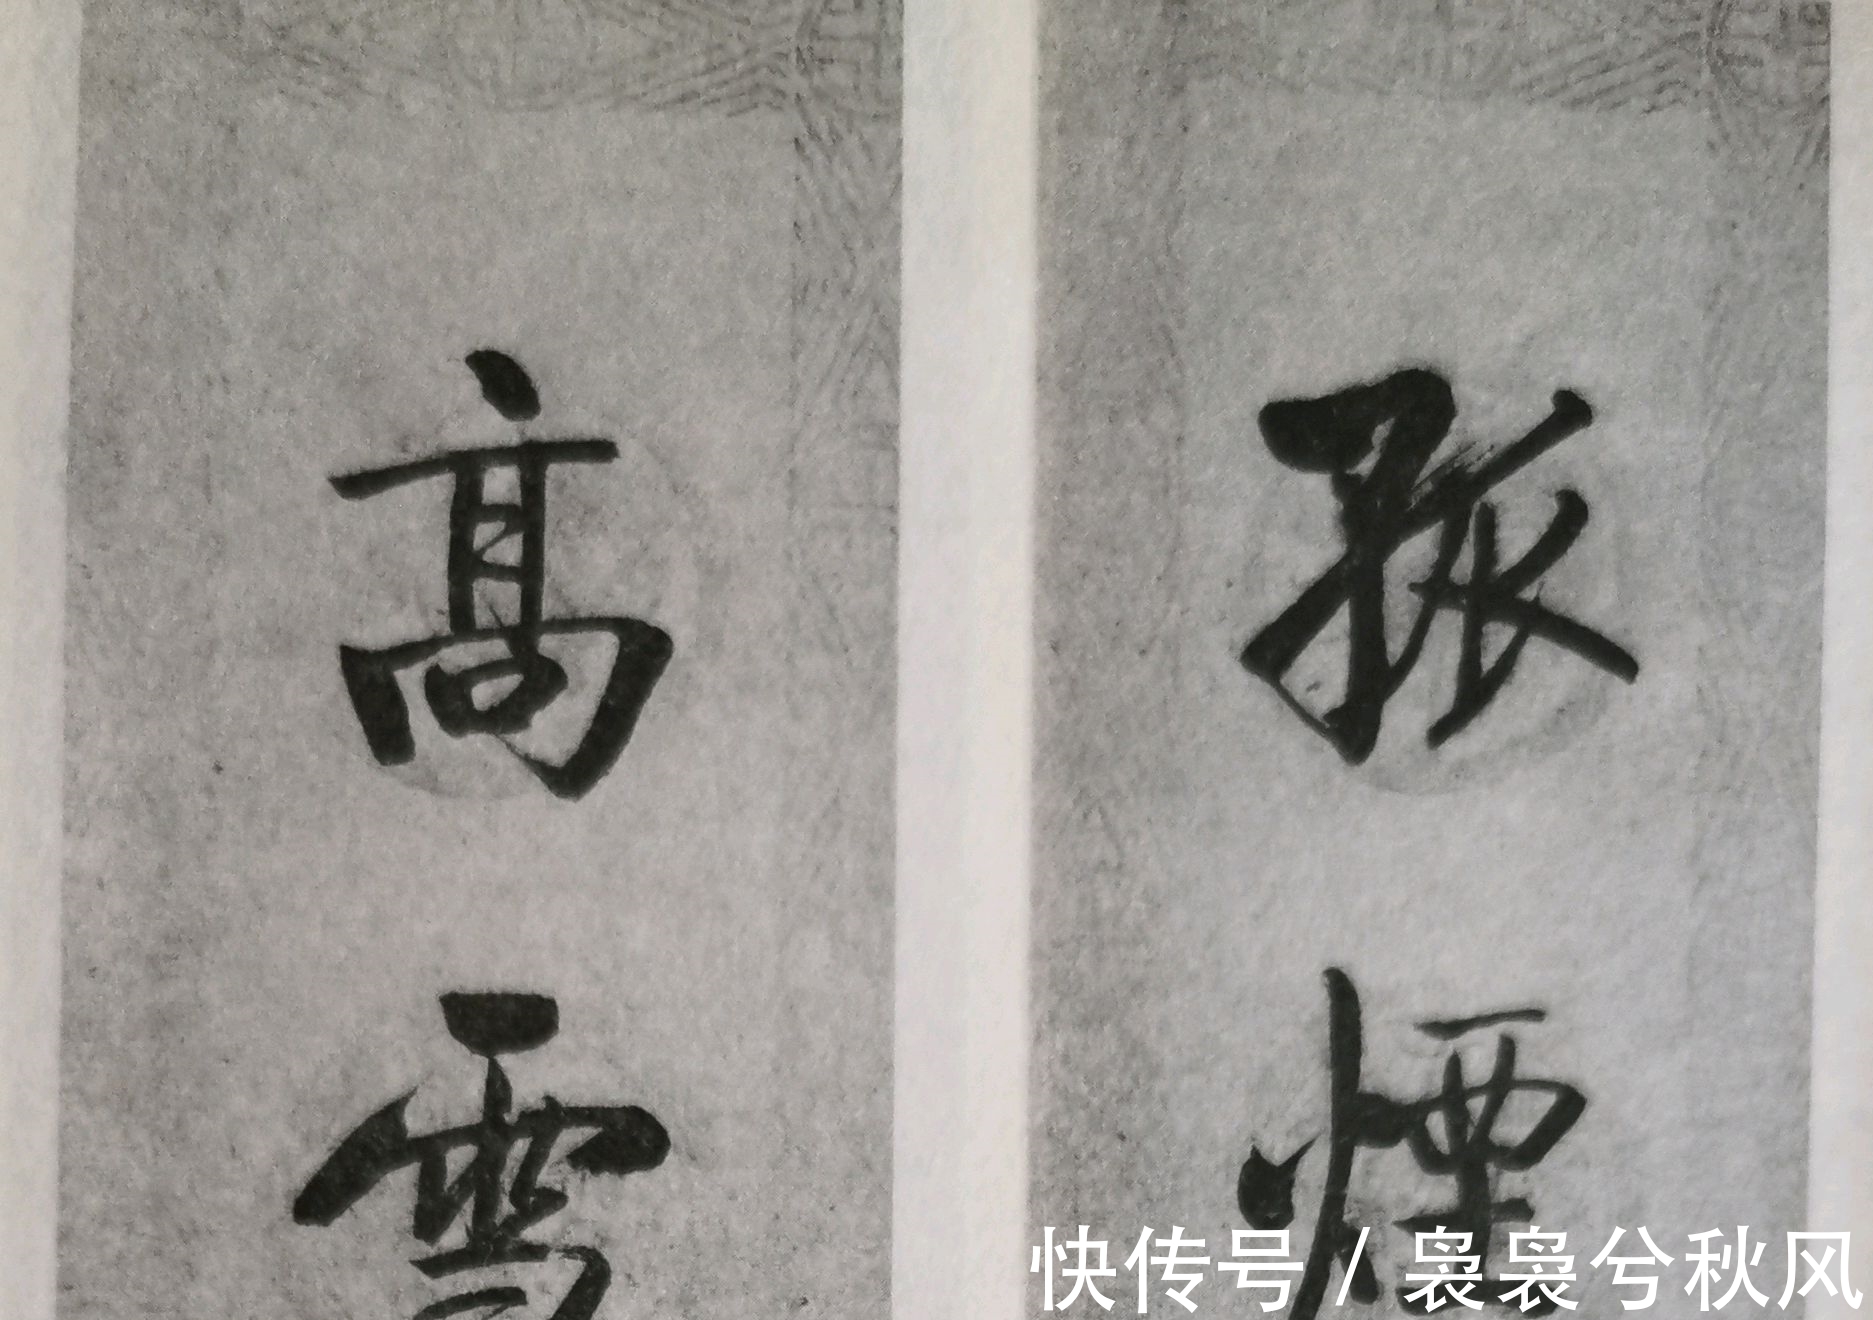 孤煙
高雪
快传号 / 袅袅兮秋风